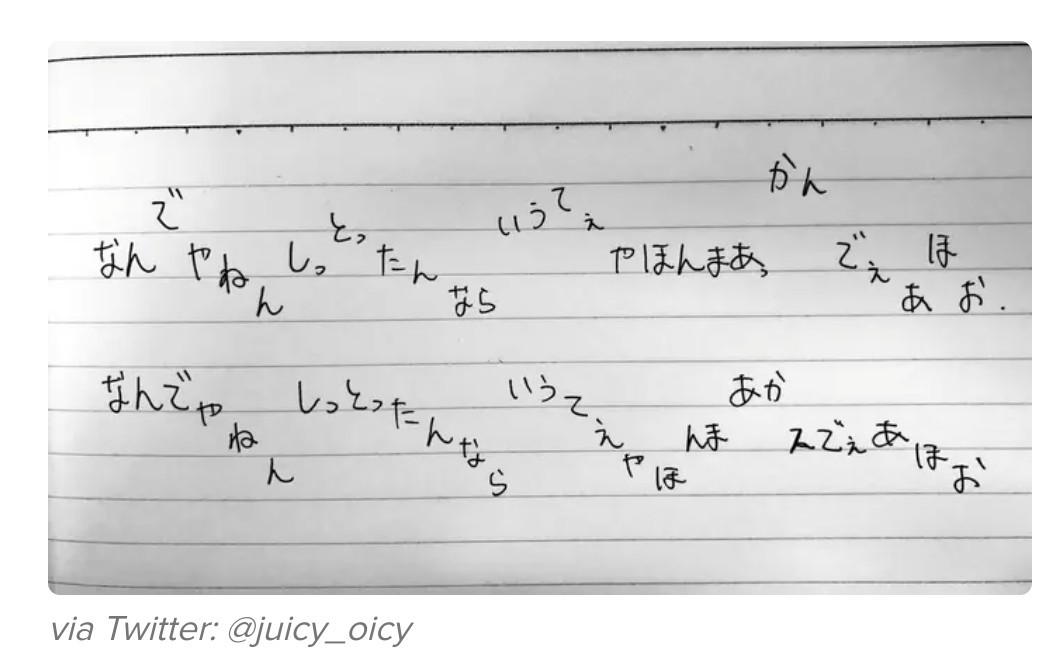 なんでやねんしっとったんならいうてぇやほんまあ、かんでぇあほお.
なんでやねんしっとったんならいうてぇやほんまあかんでぇあほお
via Twitter: @juicy_oicy